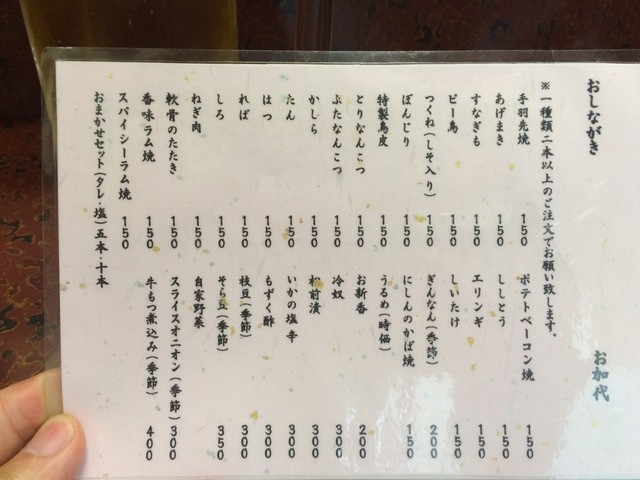 おしながき
お加代
※一種類二本以上のご注文でお願い致します。
手羽先焼 150
あげまき 150
すなぎも 150
ピー鳥 150
つくね(しそ入り) 150
ぼんじり 150
特製鳥皮 150
とりなんこつ 150
ぶたなんこつ 150
かしら 150
たん 150
はつ 150
れば 150
しろ 150
ねぎ肉 150
軟骨のたたき 150
香味ラム焼 150
スパイシーラム焼 150
おまかせセット(タレ・塩)五本・十本
ポテトベーコン焼 150
ししとう 150
エリンギ 150
しいたけ 150
ぎんなん(季節) 200
にしんのかば焼 150
うるめ(時価)
お新香 200
冷奴 300
松前漬 300
いかの塩辛 300
もずく酢 300
枝豆(季節) 300
そら豆(季節) 350
自家野菜
スライスオニオン(季節) 300
牛もつ煮込み(季節) 400